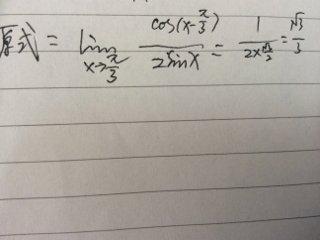 原式 = lim_{x→π/3} cos(x-π/3) / 2sinx = 1 / (2×√3/2) = √3/3